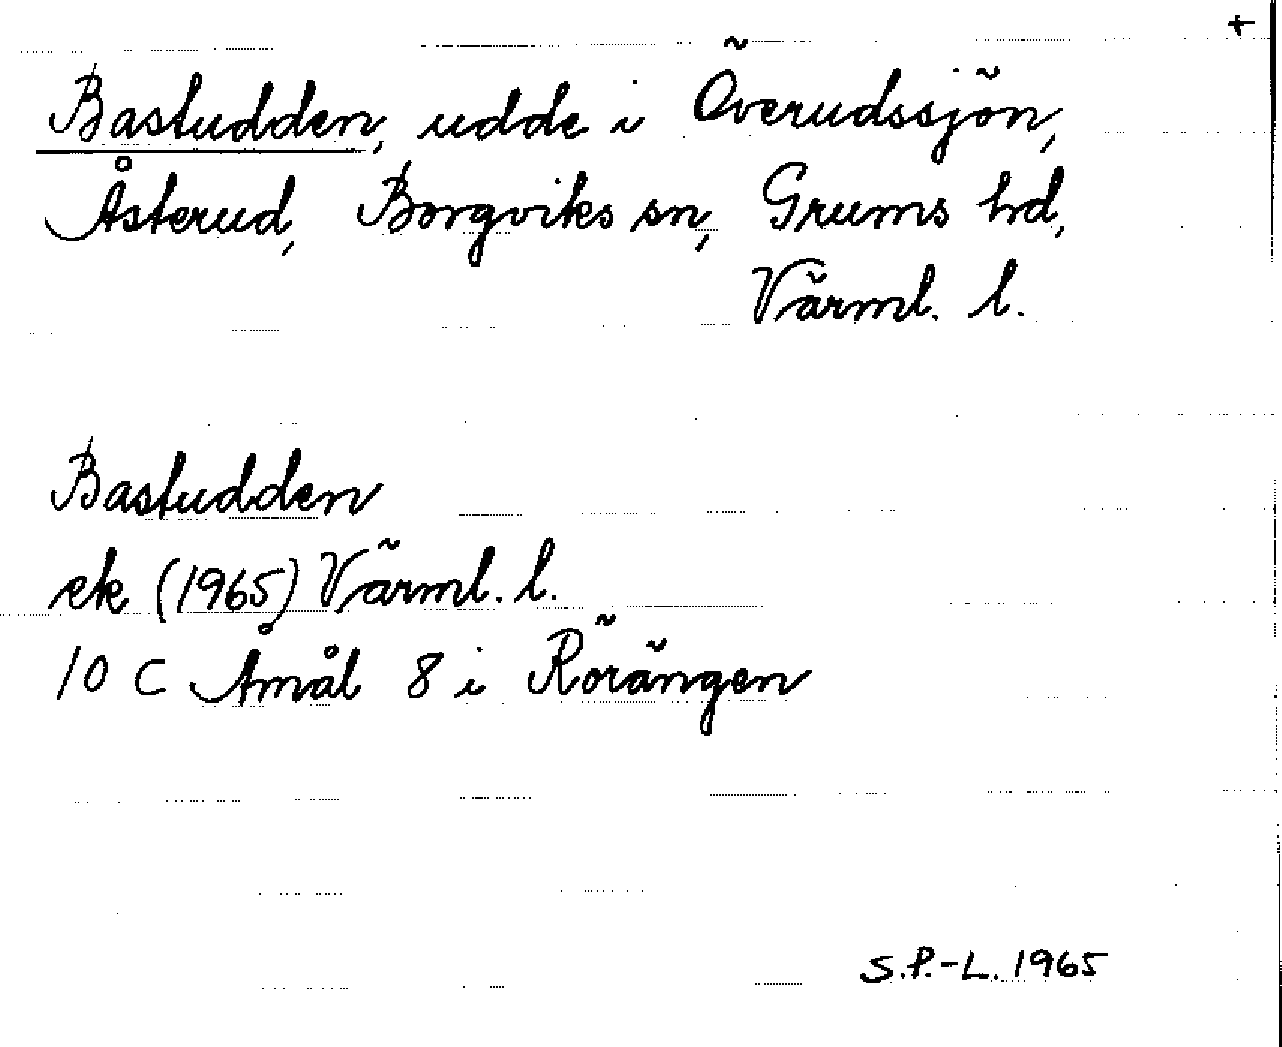 +
Bastudden, udde i Överudssjön,
Åsterud, Borgviks sn, Grums hd,
Värml. l.
Bastudden
ek (1965) Värml. l.
10 C Åmål 8 i Rörängen
S.P.-L. 1965